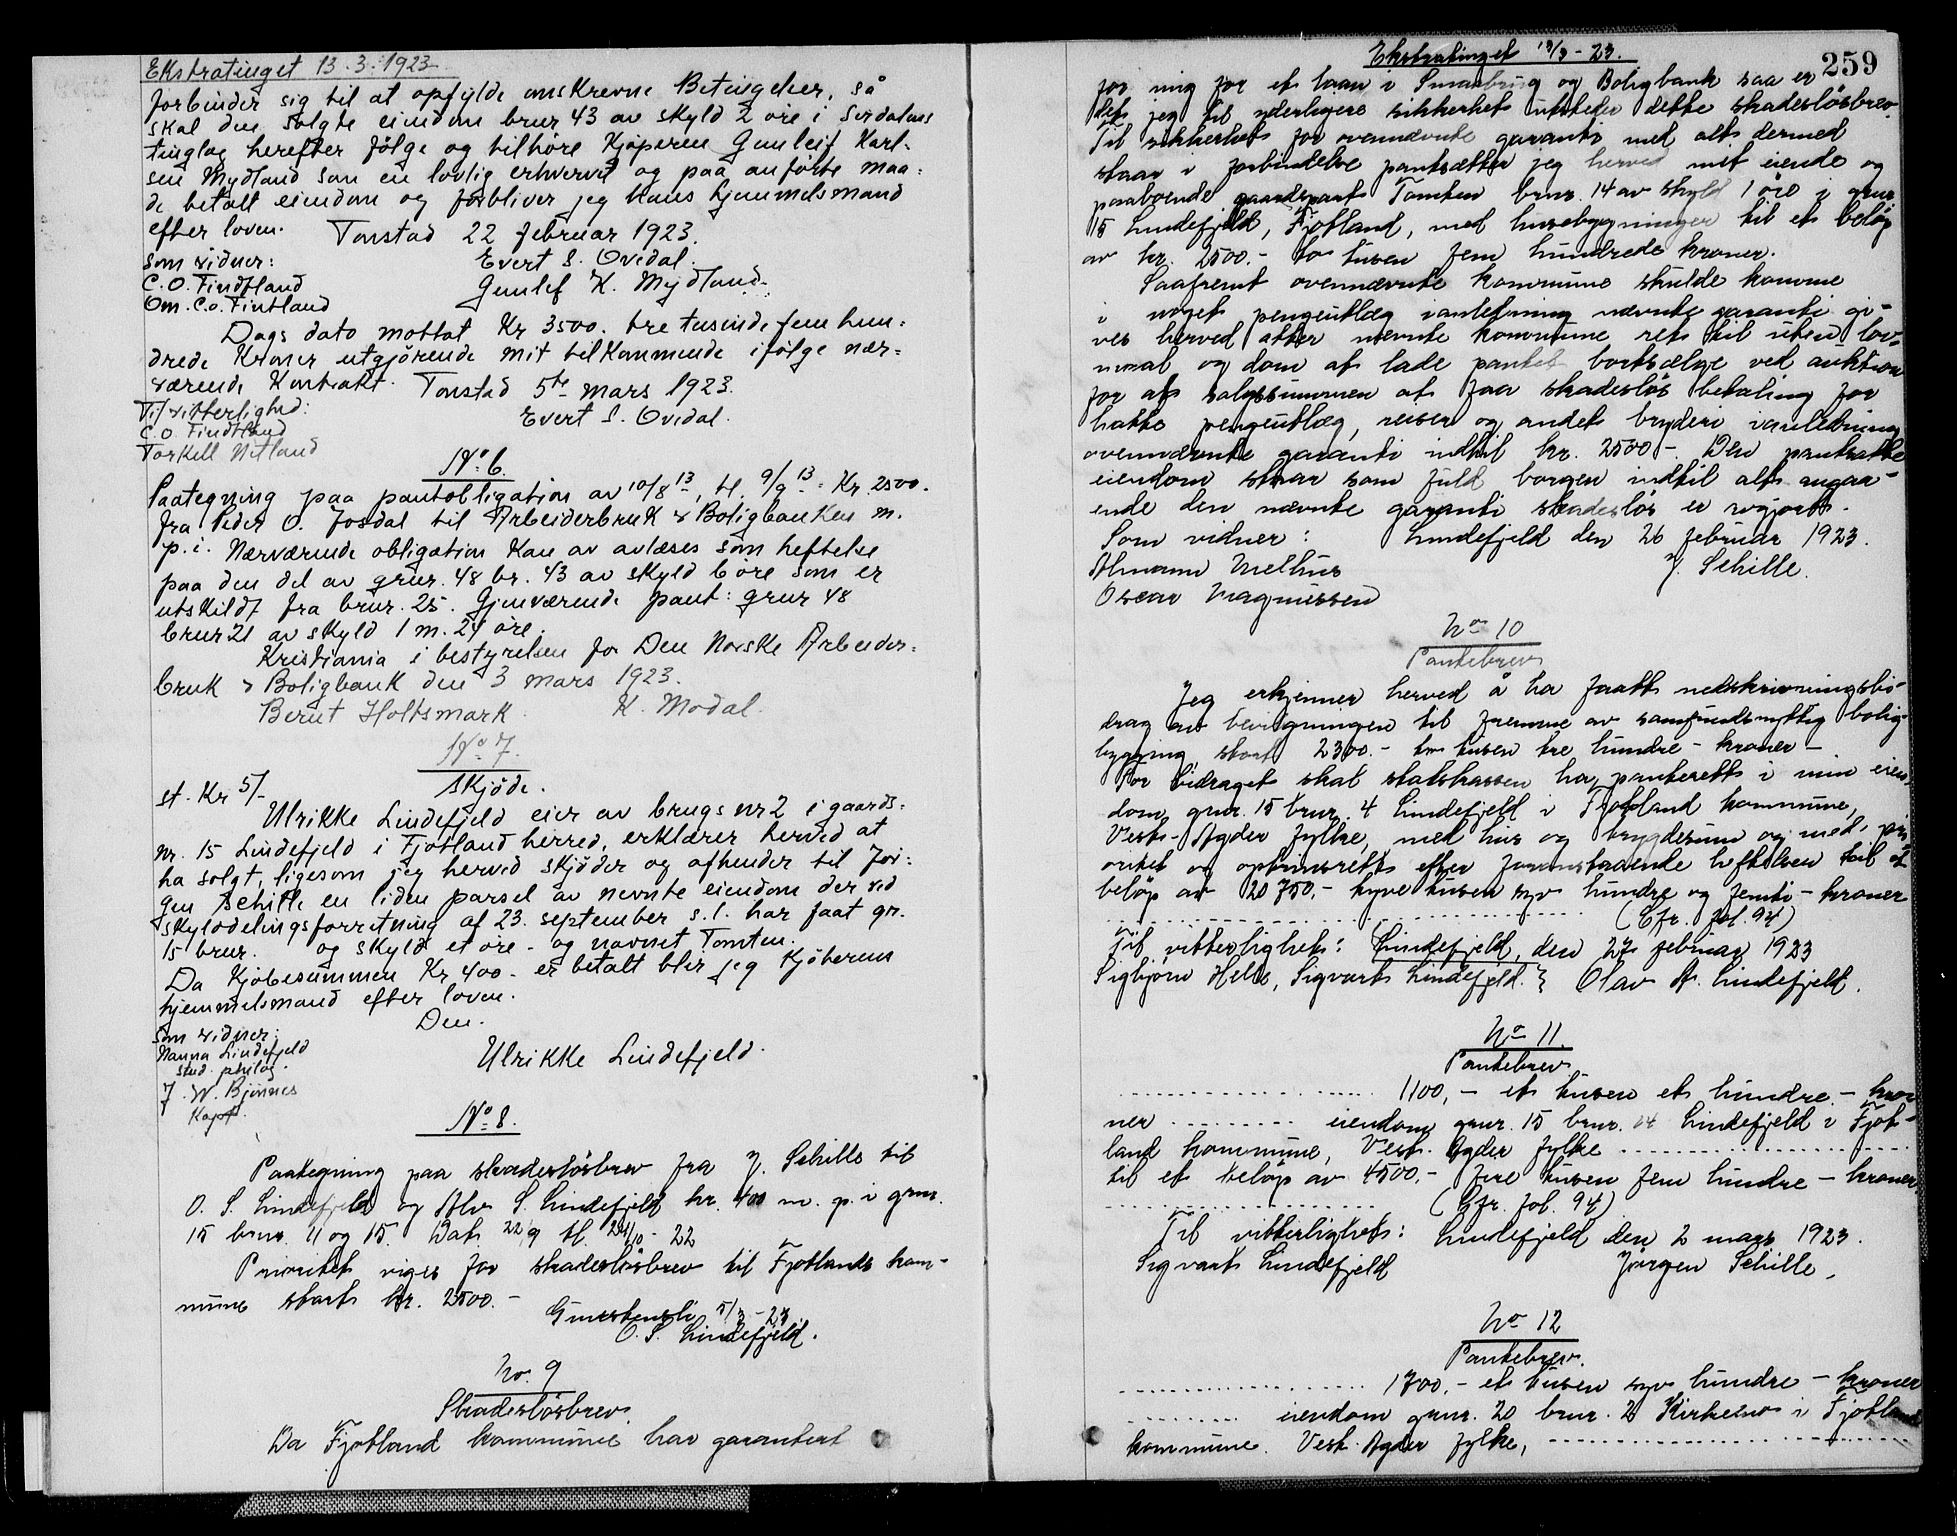 Ekstratinget 13.3.1923.
forbinder sig til at opfylde omskrevne Betingelser, så
skal den solgte eiendom brnr 43 av skyld 2 øre i Sirdalens
tinglag herefter følge og tilhøre Kjøperen Gunleif Karl-
sen Mydland som en lovlig erhvervet og paa anførte maa-
de betalt eiendom og forbliver jeg hans hjemmelsmand
efter loven. Tonstad 22 februar 1923.
som vidner: Evert S. Ovedal.
C.O. Findtland Gunlef K. Mydland.
Om. C.O. Fintland
Dags dato mottat Kr 3500. tre tusinde fem hun-
drede Kroner utgjørende mit tilkommende ifølge nær-
værende Kontrakt. Tonstad 5te mars 1923.
Til vitterlighed: Evert S. Ovedal.
C.O. Findtland
Torkell Netland
No 6.
Paategning paa pantobligation av 10/8 13, tl. 9/9 13. Kr 2500.
fra Peder O. Josdal til Arbeiderbruk & Boligbanken m.
p. i. Nærværende obligation kan av avlæses som heftelse
paa den del av grnr. 48 br. 43 av skyld 6 øre som er
utskildt fra brnr. 25. Gjenværende pant: grnr 48
brnr 21 av skyld 1 m. 24 øre.
Kristiania i bestyrelsen for Den Norske Arbeider-
bruk & Boligbank den 3 mars 1923.
Bernt Holtsmark. K. Modal.
No 7.
Skjøde.
st. Kr 5/-
Ulrikke Lindefjeld eier av brugs nr 2 i gaards-
nr. 15 Lindefjeld i Fjotland herred, erklærer herved at
ha solgt, ligesom jeg herved skjøder og afhender til Jør-
gen Schille en liden parsel av nevnte eiendom der ved
skylddelingsforretning af 23. september s.l. har faat gr.
15 brnr. og skyld et øre - og navnet Tomten.
Da Kjøbesummen Kr 400 - er betalt blir jeg Kjøberens
hjemmelsmand efter loven.
Den.
Som vidner: Ulrikke Lindefjeld.
Nanna Lindefjeld
stud. philog.
J. W. Bjønnes
Kapt.
No 8.
Paategning paa skadesløsbrev fra J. Schille til
O. S. Lindefjeld og Alv S. Lindefjeld kr. 400 m. p. i grnr.
15 brnr. 11 og 15. Dat. 22/9 tl. 24/10 - 22
Prioritet viges for skadesløsbrev til Fjotlands kom-
mune stort kr. 2500.-
5/3 - 23
O. S. Lindefjeld.
No. 9
Skadesløsbrev
Da Fjotland kommune har garantert
Ekstratinget 13/3 - 23.
259
for mig for et laan i Smaabrug og Boligbank saa er
det jeg til yderligere sikkerhet utsteder dette skadesløsbrev.
Til sikkerhet for ovennævnte garanti med alt dermed
staar i forbindelse pantsætter jeg herved mit eiende og
paaboende gaardspart Tomten brnr. 14 av skyld 1 øre i grnr.
15 Lindefjeld, Fjotland, med husebygninger til et beløp
av kr. 2500.- to tusen fem hundrede kroner.
Saafremt ovennævnte kommune skulde komme
i noget pengeutlæg i anledning nævnte garanti gi-
ves herved atter nævnte kommune ret til uten lov-
maal og dom at lade pantet bortsælge ved auktion
for at salgssummen at faa skadesløs betaling for
hatte pengeutlæg, reiser og andet bryderi i anledning
ovennævnte garanti indtil kr. 2500 - Den pantsatte
eiendom staar som fuld borgen indtil alt angaa-
ende den nævnte garanti skadesløs er avgjort.
Som vidner: Lindefjeld den 26 februar 1923.
Almann Melhus J. Schille.
Oscar Magnussen
No 10
Pantebrev
Jeg erkjenner herved å ha faatt nedskrivningsbi-
drag av bevilgningen til fremme av samfundsnyttig bolig-
bygging stort 2300.- to tusen tre hundre - kroner -
For bidraget skal statskassen ha panterett i min eien-
dom gnr. 15 brnr. 4 Lindefjeld i Fjotland kommune,
Vest-Agder fylke, med hus og byggesum og med pri-
oritet og optrinsrett efter foranstaaende heftelser til et
beløp av 20750.- tyve tusen syv hundre og femti - kroner
.................... (Cfr. fol. 94)
Til vitterlighet: Lindefjeld, den 27 februar 1923
Sigbjørn Helle, Sigvart Lindefjeld. } Olav A. Lindefjeld.
No 11.
Pantebrev
.................... 1100,- et tusen et hundre - kro-
ner .......... eiendom gnr. 15 brnr. 14 Lindefjeld i Fjot-
land kommune, Vest-Agder fylke ....................
til et beløp av 4500.- fire tusen fem hundre - kroner
.................... (Cfr. fol. 94)
Til vitterlighet: Lindefjeld den 2 mars 1923.
Sigvart Lindefjeld Jørgen Schille.
No 12
Pantebrev.
.................... 1700.- et tusen syv hundre - kroner
.......... eiendom gnr. 20 brnr. 2 i Fjotland
kommune. Vest-Agder fylke, ....................